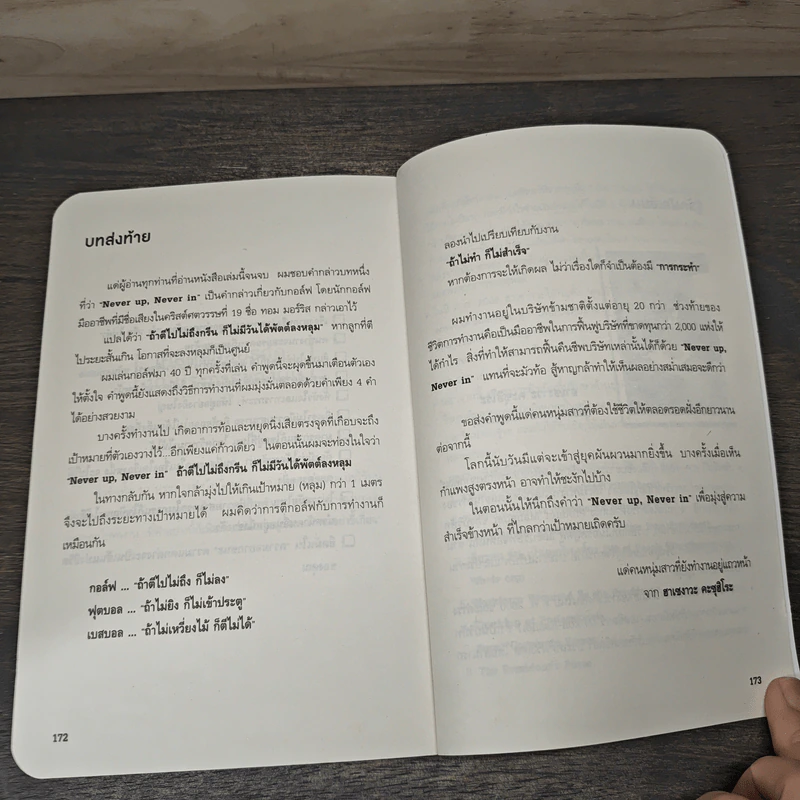 บทส่งท้าย
แด่ผู้อ่านทุกท่านที่อ่านหนังสือเล่มนี้จนจบ ผมชอบคำกล่าวบทหนึ่ง
ที่ว่า "Never up, Never in" เป็นคำกล่าวเกี่ยวกับกอล์ฟ โดยนักกอล์ฟ
มืออาชีพที่มีชื่อเสียงในคริสต์ศตวรรษที่ 19 ชื่อ ทอม มอร์ริส กล่าวเอาไว้
แปลได้ว่า "ถ้าตีไปไม่ถึงกรีน ก็ไม่มีวันได้พัตต์ลงหลุม" หากลูกที่ตี
ไประยะสั้นเกิน โอกาสที่จะลงหลุมก็เป็นศูนย์
ผมเล่นกอล์ฟมา 40 ปี ทุกครั้งที่เล่น คำพูดนี้จะผุดขึ้นมาเตือนตัวเอง
ให้ตั้งใจ คำพูดนี้ยังแสดงถึงวิธีการทำงานที่ผมมุ่งมั่นตลอดด้วยคำเพียง 4 คำ
ได้อย่างสวยงาม
บางครั้งทำงานไป เกิดอาการท้อและหยุดนิ่งเสียตรงจุดที่เกือบจะถึง
เป้าหมายที่ตัวเองวางไว้...อีกเพียงแค่ก้าวเดียว ในตอนนั้นผมจะท่องในใจว่า
"Never up, Never in" ถ้าตีไปไม่ถึงกรีน ก็ไม่มีวันได้พัตต์ลงหลุม
ในทางกลับกัน หากใจกล้ามุ่งไปให้เกินเป้าหมาย (หลุม) กว่า 1 เมตร
จึงจะไปถึงระยะทางเป้าหมายได้ ผมคิดว่าการตีกอล์ฟกับการทำงานก็
เหมือนกัน
กอล์ฟ ... "ถ้าตีไปไม่ถึง ก็ไม่ลง"
ฟุตบอล ... "ถ้าไม่ยิง ก็ไม่เข้าประตู"
เบสบอล ... "ถ้าไม่เหวี่ยงไม้ ก็ตีไม่ได้"
172
ลองนำไปเปรียบเทียบกับงาน
"ถ้าไม่ทำ ก็ไม่สำเร็จ"
หากต้องการจะให้เกิดผล ไม่ว่าเรื่องใดก็จำเป็นต้องมี "การกระทำ"
ผมทำงานอยู่ในบริษัทข้ามชาติตั้งแต่อายุ 20 กว่า ช่วงท้ายของ
ชีวิตการทำงานคือเป็นมืออาชีพในการฟื้นฟูบริษัทที่ขาดทุนกว่า 2,000 แห่งให้
ได้กำไร สิ่งที่ทำให้สามารถฟื้นคืนชีพบริษัทเหล่านั้นได้ก็ด้วย "Never up,
Never in" แทนที่จะมัวท้อ สู้หาญกล้าทำให้เห็นผลอย่างสม่ำเสมอจะดีกว่า
ขอส่งคำพูดนี้แด่คนหนุ่มสาวที่ต้องใช้ชีวิตให้ตลอดรอดฝั่งอีกยาวนาน
ต่อจากนี้
โลกนี้นับวันมีแต่จะเข้าสู่ยุคผันผวนมากยิ่งขึ้น บางครั้งเมื่อเห็น
กำแพงสูงตรงหน้า อาจทำให้ชะงักไปบ้าง
ในตอนนั้นให้นึกถึงคำว่า "Never up, Never in" เพื่อมุ่งสู่ความ
สำเร็จข้างหน้า ที่ไกลกว่าเป้าหมายเถิดครับ
แด่คนหนุ่มสาวที่ยังทำงานอยู่แถวหน้า
จาก ฮาเซงาวะ คะซุฮิโระ
173